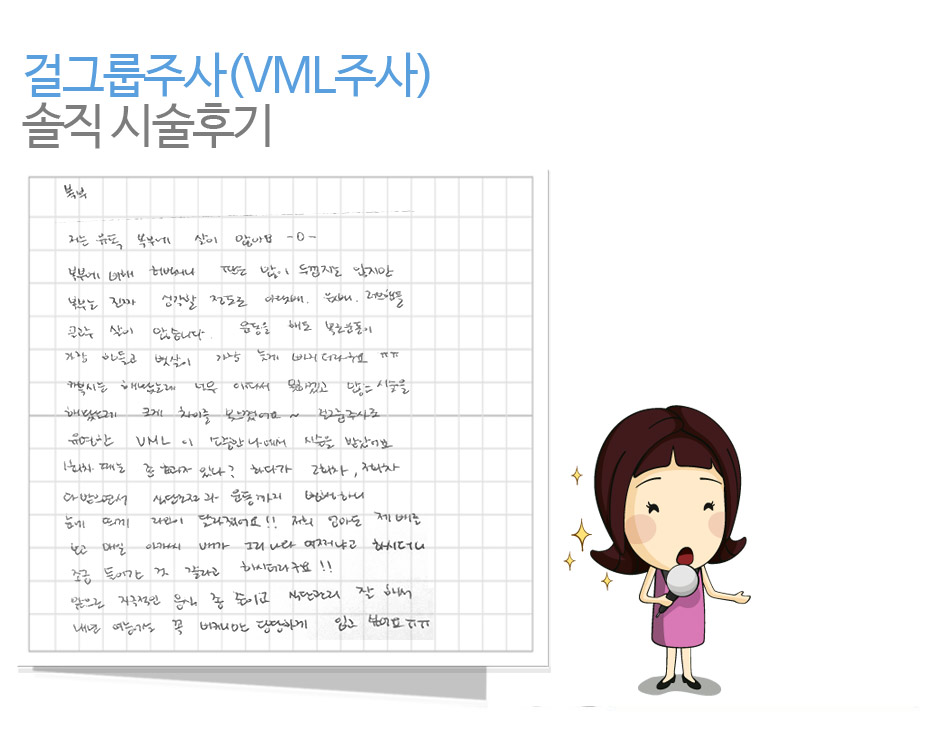 걸그룹주사(VML주사)
솔직 시술후기
복부
저는 유독 복부에 살이 많아요 -0-
복부에 비해 허벅지나 팔은 많이 두껍지는 않지만
복부는 진짜 심각할 정도로 아랫배, 윗배, 러브핸들
골고루 살이 많습니다. 운동을 해도 복부운동이
가장 힘들고 뱃살이 가장 늦게 빠지더라구요 ㅠㅠ
해봤는데 너무 아파서 못하겠고 시술을
해봤는데 크게 차이를 못느꼈어요~ 걸그룹주사로
유명한 VML 이 나에서 시술을 받았어요
1회차 때는 좀 효과가 있나? 하다가 2회차, 3회차
다 받으면서 식단조절과 운동까지 병행하니
눈에 띄게 라인이 달라졌어요!! 저희 엄마도 제 배를
보고 매일 아가씨 배가 그리 나와 어쩌냐고 하시더니
조금 들어간 것 같다고 하시더라구요!!
앞으로 자극적인 음식 좀 줄이고 식단관리 잘 해서
내년 여름에는 꼭 비키니만 당당하게 입고 싶어요ㅠㅠ